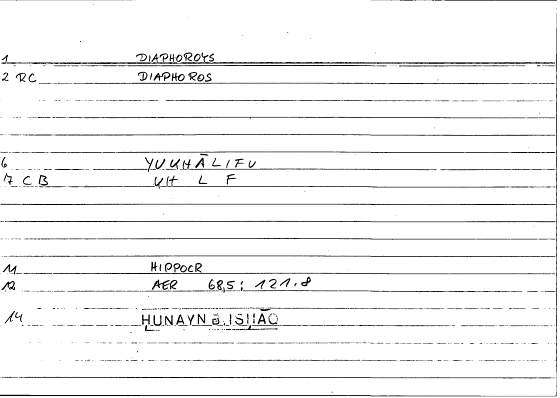 1 DIAPHOROYS
2 RC DIAPHOROS
6 YUUHĀLIFU
7 CB UH L F
11 HIPPOCR
12 AER 68,5 ; 121.8
14 HUNAYN B. ISḤĀQ